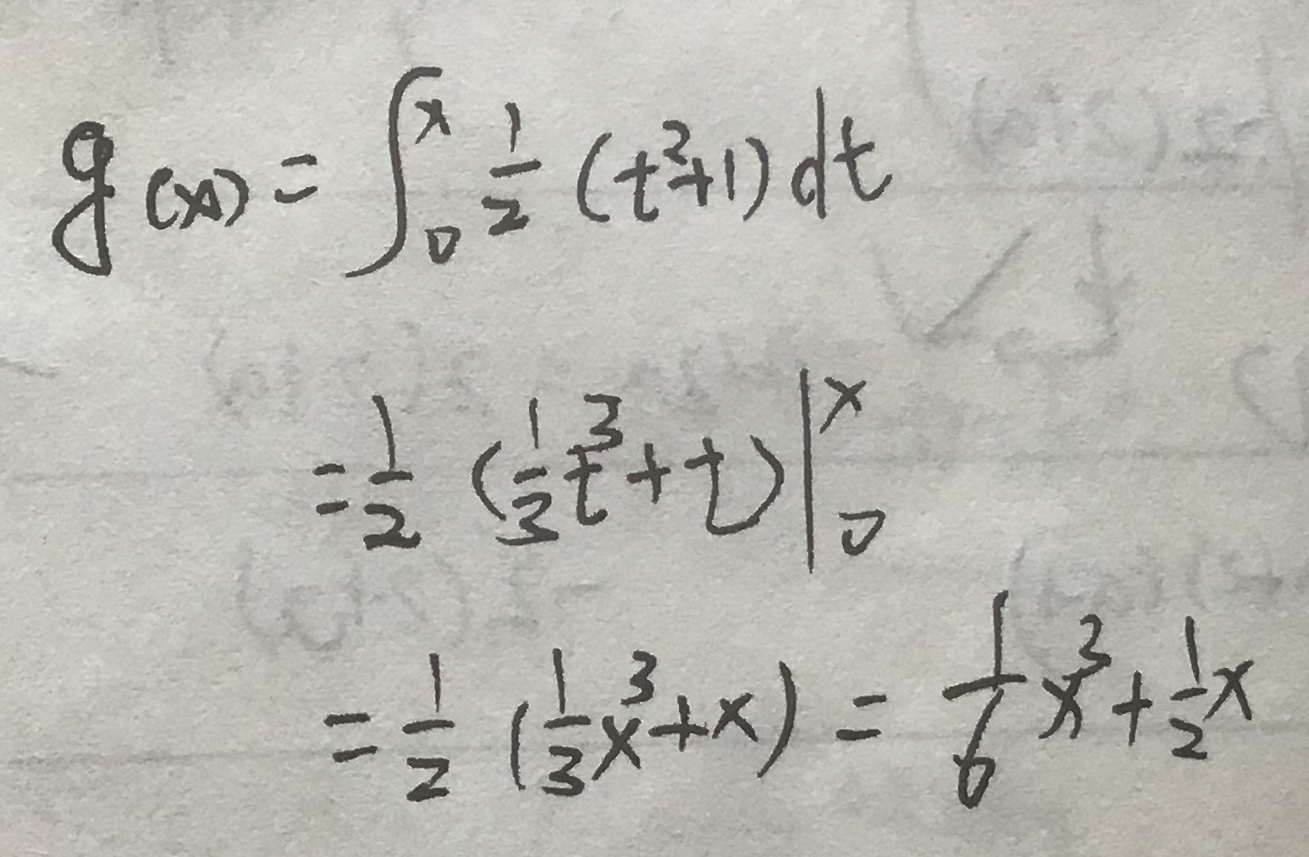 g(x) = ∫₀ˣ 1/2 (t²+1) dt
= 1/2 (1/3 t³ + t) |₀ˣ
= 1/2 (1/3 x³ + x) = 1/6 x³ + 1/2 x